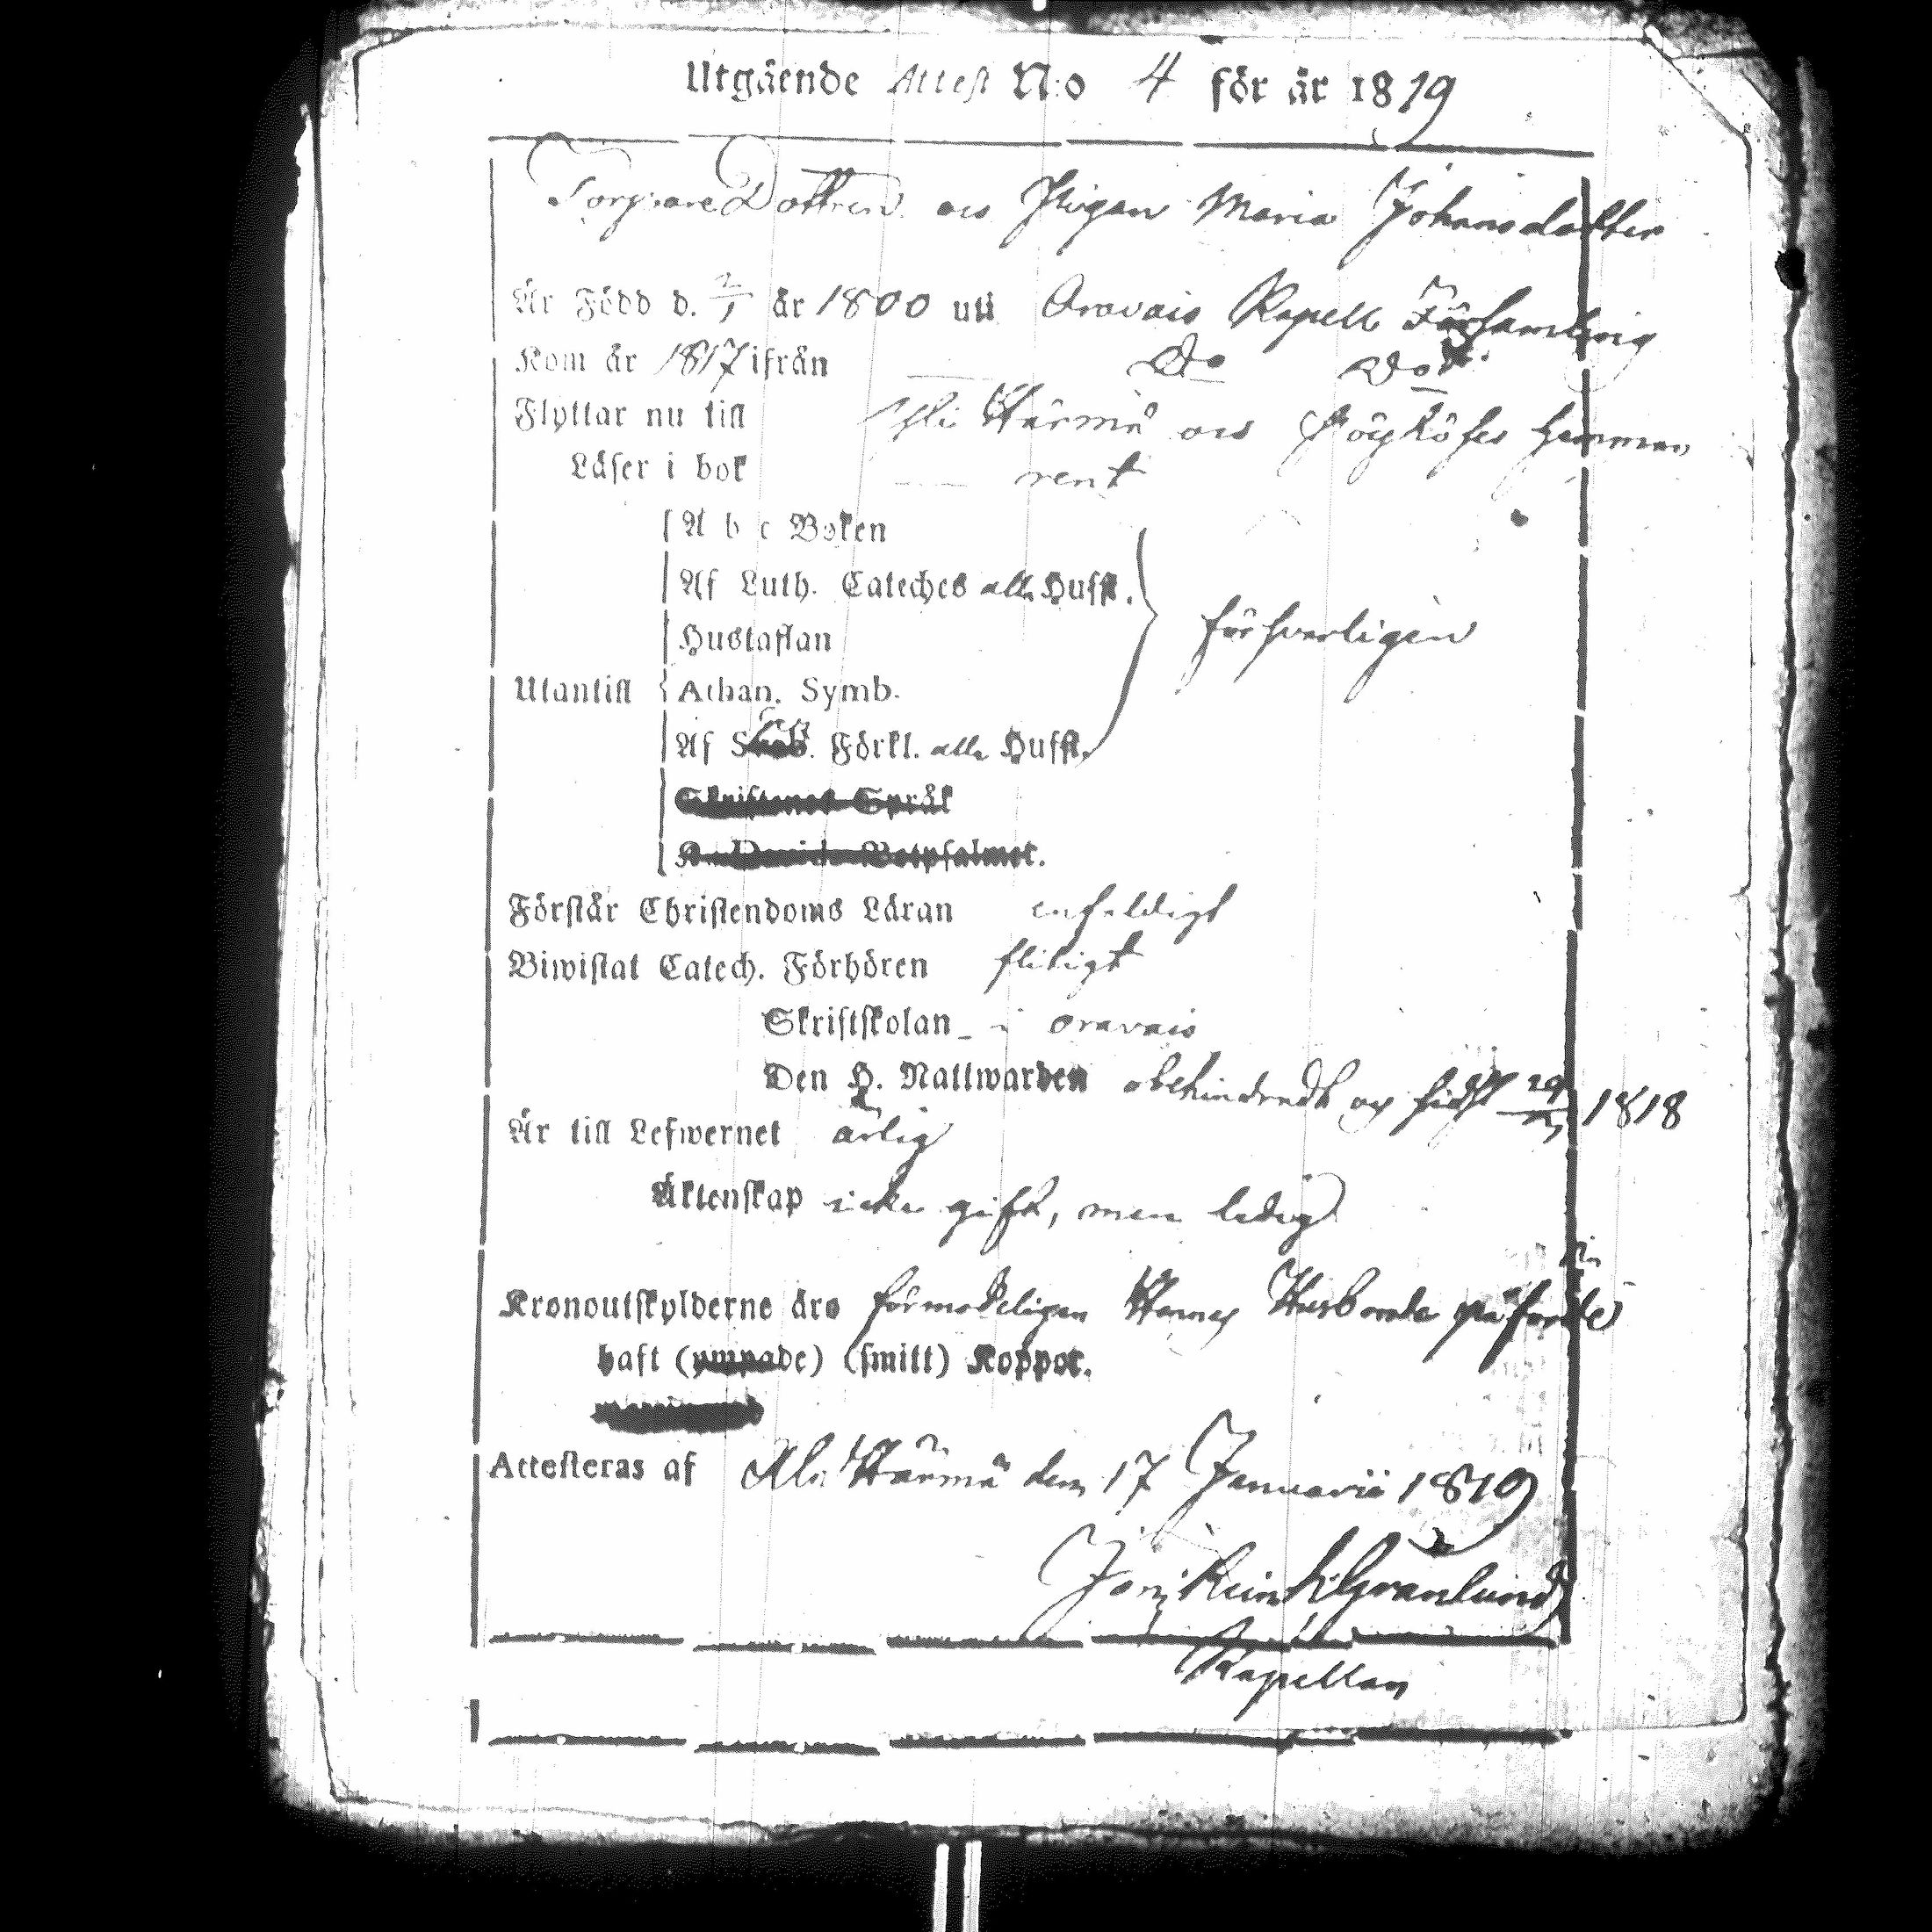 Utgående Attest N:o 4 för år 1819
Torpare Dottren och Pigan Maria Johansdotter
Är Född d. 2/1 år 1800 uti Oravais Kapell Församling
Kom år 1817 ifrån Do Do
Flyttar nu till Härmä hemman
Läser i bok rent
A b c Boken
Af Luth. Cateches alla Hufst.
Hustaflan
Utantill Athan. Symb.
Af Förkl. alla Hufst.
Skriftenes Språk
K. Davids Botpsalmer.
försvarligen
Förstår Christendoms Läran enfaldigt
Biwistat Catech. Förhören flitigt
Skriftskolan i Oravais
Den H. Nattwarden obehindradt och sidst 1818
Är till Lefwernet ärlig
Äktenskap icke gift, men ledig
Kronoutskylderne äro förmodeligen Hennes Husbonde
haft (ympade) (smitt) Koppor.
Attesteras af Härmä den 17 Januarii 1819
Granlund
Kapellan